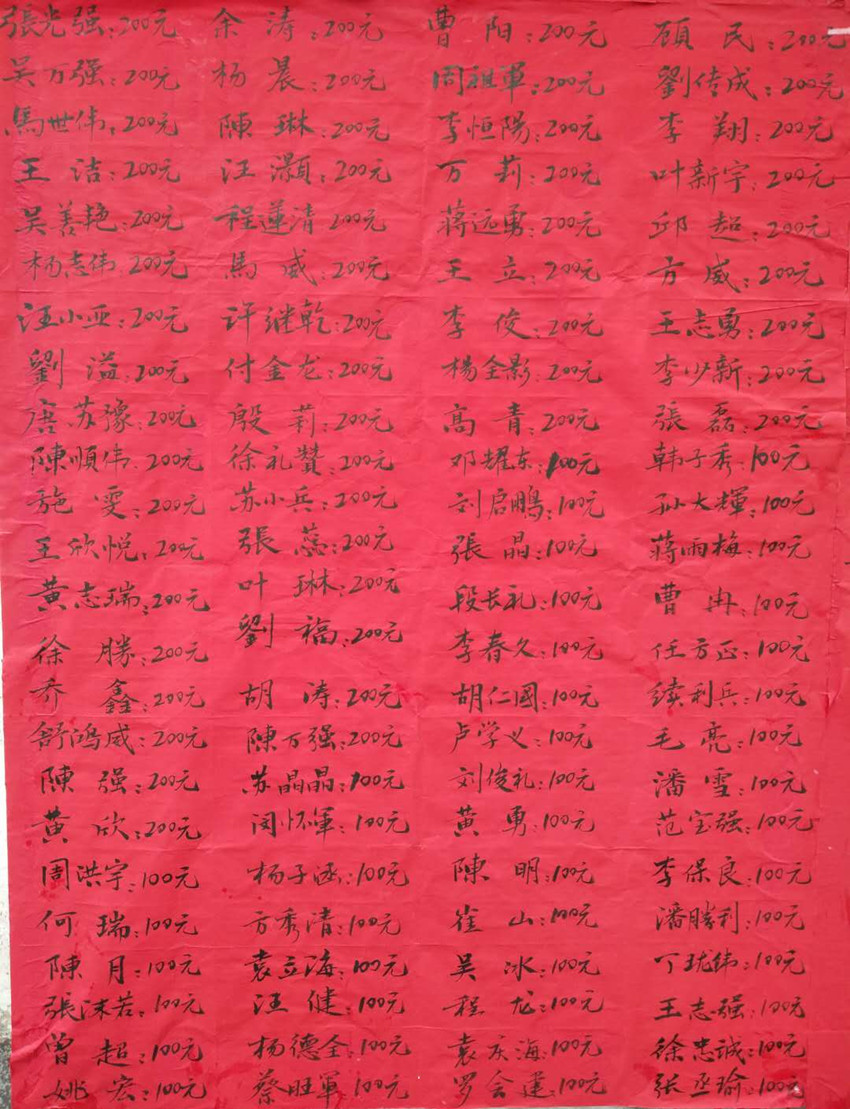 張光强:200元 余涛:200元 曹阳:200元 顾民:200元
吴万强:200元 杨晨:200元 周祖軍:200元 劉传成:200元
馬世伟:200元 陳琳:200元 李恒陽:200元 李翔:200元
王洁:200元 汪灝:200元 万莉:200元 叶新宇:200元
吴善艳:200元 程蓮清200元 蒋远勇:200元 邱超:200元
杨志伟:200元 馬威:200元 王立:200元 方威:200元
汪小亚:200元 许继乾:200元 李俊:200元 王志勇:200元
劉溢:200元 付金龙:200元 楊全影:200元 李少新:200元
唐苏豫:200元 殷莉:200元 高青:200元 張磊:200元
陳順伟:200元 徐礼贊:200元 邓耀东:100元 韩子秀:100元
施雯:200元 苏小兵:200元 刘启鵬:100元 孙大輝:100元
王欣悦:200元 張蕊:200元 張晶:100元 蒋雨梅:100元
黄志瑞:200元 叶琳:200元 段长礼:100元 曹冉:100元
徐勝:200元 劉福:200元 李春久:100元 任方正:100元
乔鑫:200元 胡涛:200元 胡仁國:100元 续利兵:100元
舒鸿威:200元 陳万强:200元 卢学义:100元 毛亮:100元
陳强:200元 苏晶晶:100元 刘俊礼:100元 潘雪:100元
黄欣:200元 闵怀軍:100元 黄勇:100元 范宝强:100元
周洪宇:100元 杨子涵:100元 陳明:100元 李保良:100元
何瑞:100元 方秀清:100元 崔山:100元 潘勝利:100元
陳月:100元 袁立海:100元 吴冰:100元 丁珑伟:100元
張沫若:100元 汪健:100元 程龙:100元 王志强:100元
曾超:100元 杨德全:100元 袁庆海:100元 徐忠诚:100元
姚宏:100元 蔡旺軍:100元 罗会建:100元 张丞瑜:100元